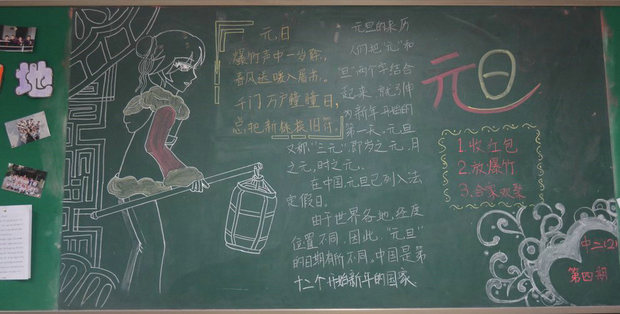 地
元旦
爆竹声中一岁除,
春风送暖入屠苏。
千门万户曈曈日,
总把新桃换旧符。
元旦的来历
人们把"元"和
"旦"两个字结合
起来,就引申
为新年开始的
第一天。元旦
又称"三元",即岁之元、月
之元,时之元。
在中国元旦已列入法
定假日。
由于世界各地,经度
位置不同,因此,"元旦"
的日期有所不同。中国是第
十二个开始新年的国家
元旦
1.收红包
2.放爆竹
3.合家欢聚
中三(2)
第四期